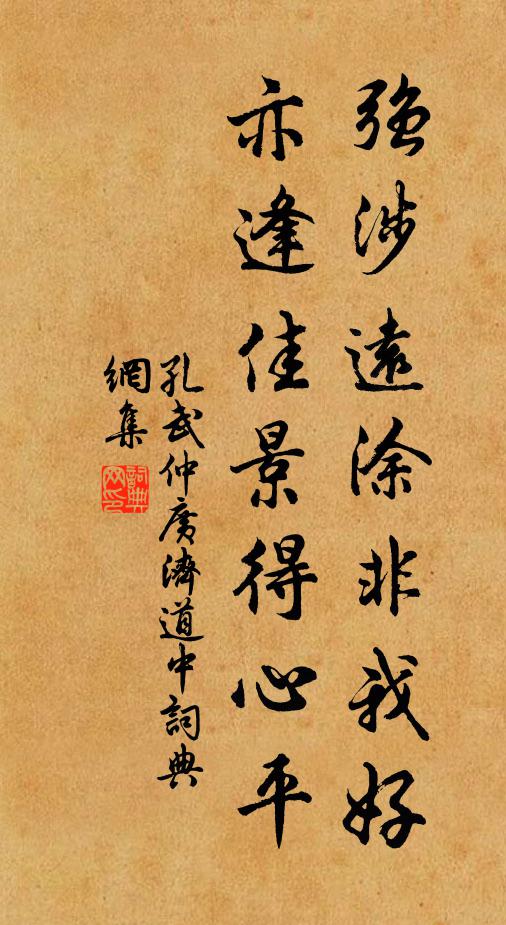 強涉遠涂非我好
亦逢佳景得心平
孔武仲廣濟道中詞典
網集
詞典
网印